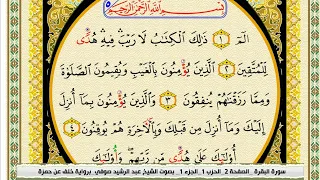 بِسْمِ اللَّهِ الرَّحْمَٰنِ الرَّحِيمِ
الٓمٓ ١ ذَٰلِكَ الْكِتَٰبُ لَا رَيْبَ فِيهِ هُدًى
لِّلْمُتَّقِينَ ٢ الَّذِينَ يُؤْمِنُونَ بِالْغَيْبِ وَيُقِيمُونَ الصَّلَوٰةَ
وَمِمَّا رَزَقْنَٰهُمْ يُنفِقُونَ ٣ وَالَّذِينَ يُؤْمِنُونَ بِمَا أُنزِلَ
إِلَيْكَ وَمَا أُنزِلَ مِن قَبْلِكَ وَبِالْأَخِرَةِ هُمْ يُوقِنُونَ ٤
أُولَٰئِكَ عَلَىٰ هُدًى مِّن رَّبِّهِمْ وَأُولَٰئِكَ
سورة البقرة _ الصفحة 2_ الحزب 1_ الجزء 1_ بصوت الشيخ عبد الرشيد صوفي_ برواية خلف عن حمزة